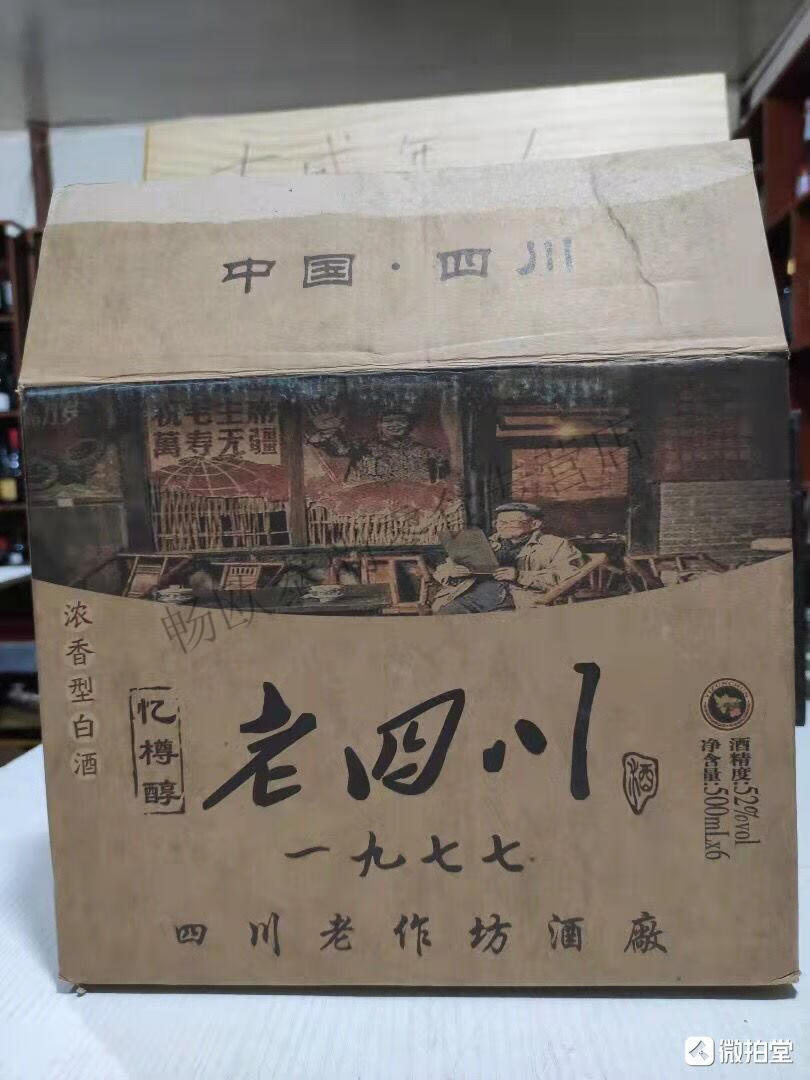 中国·四川
祝毛主席
萬寿无疆
浓香型白酒
忆樽醇
老四川
酒
一九七七
四川老作坊酒廠
酒精度:52%vol
净含量:500mLx6
微拍堂